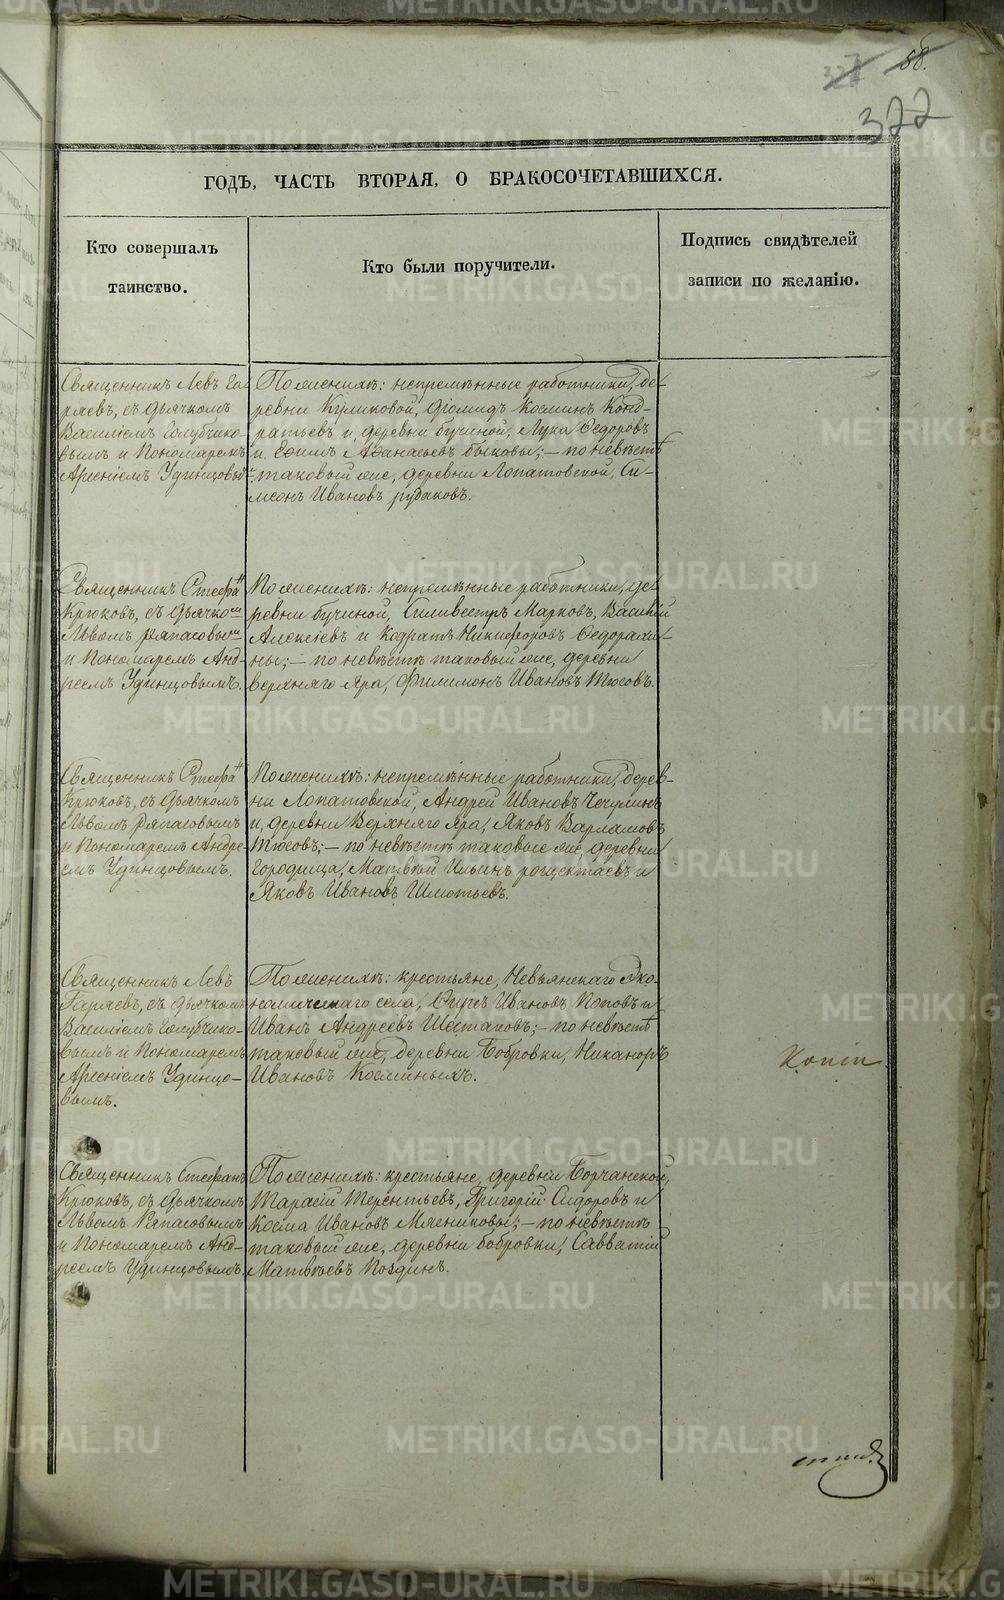 58.
322
ГОДЪ, ЧАСТЬ ВТОРАЯ, О БРАКОСОЧЕТАВШИХСЯ.
Кто совершалъ
таинство.
Кто были поручители.
Подпись свидѣтелей
записи по желанію.
Священникъ Левъ Га-
ряевъ, съ дьячкомъ
Василіемъ Голубчико-
вымъ и Пономаремъ
Арсеніемъ Удинцовы-
По женихѣ: непремѣнные работники, де-
ревни Куликовой, Діомидъ Косминъ Конд-
ратьевъ и, деревни бучиной, Лука Ѳедоровъ
и Еѳимъ Аѳанасьевъ быковы; — по невѣстѣ
таковый же, деревни Лопатовской, Си-
меонъ Ивановъ рудаковъ.
Священникъ Стефа н
Крюковъ, съ дьячко м
Львомъ Ряпасовы м
и Пономаремъ Анд-
реемъ Удинцовымъ.
По женихѣ: непремѣнные работники, де-
ревни бучиной, Силивестръ Марковъ, Василій
Алексѣевъ и Кодратъ Никифоровъ Ѳедорахи-
ны; — по невѣстѣ таковый же, деревни
верхняго Яра, Филимонъ Ивановъ Тюсовъ.
Священникъ Стефа н
Крюковъ, съ дьячкомъ
Львомъ Ряпасовымъ
и Пономаремъ Андре-
емъ Удинцовымъ.
По женихѣ: непремѣнные работники, дерев-
ни Лопатовской, Андрей Ивановъ Чечулинъ
и, деревни Верхняго Яра, Яковъ Варламовъ
Тюсовъ; — по невѣстѣ таковые же, деревни
Городища, Матвѣй Ильинъ и
Яковъ Ивановъ Шмотьевъ.
Священникъ Левъ
Гаряевъ, съ дьячкомъ
Василіемъ Голубчико-
вымъ и Пономаремъ
Арсеніемъ Удинцо-
вымъ.
По женихѣ: крестьяне, Невьянскаго Эко-
номическаго села, Ивановъ Поповъ и
Иванъ Андреевъ Шестаковъ; — по невѣстѣ
таковый же, деревни Бобровки, Никаноръ
Ивановъ Косминыхъ.
Копіи
Священникъ Стефанъ
Крюковъ, съ дьячкомъ
Львомъ Ряпасовымъ
и Пономаремъ Анд-
реемъ Удинцовымъ.
По женихѣ: крестьяне, деревни Борчанской,
Тарасій Терентьевъ, Григорій Сидоровъ и
Косма Ивановъ Мясниковы; — по невѣстѣ
таковый же, деревни бобровки, Савватій
Матвѣевъ Поздинъ.
METRIKI.GASO-URAL.RU